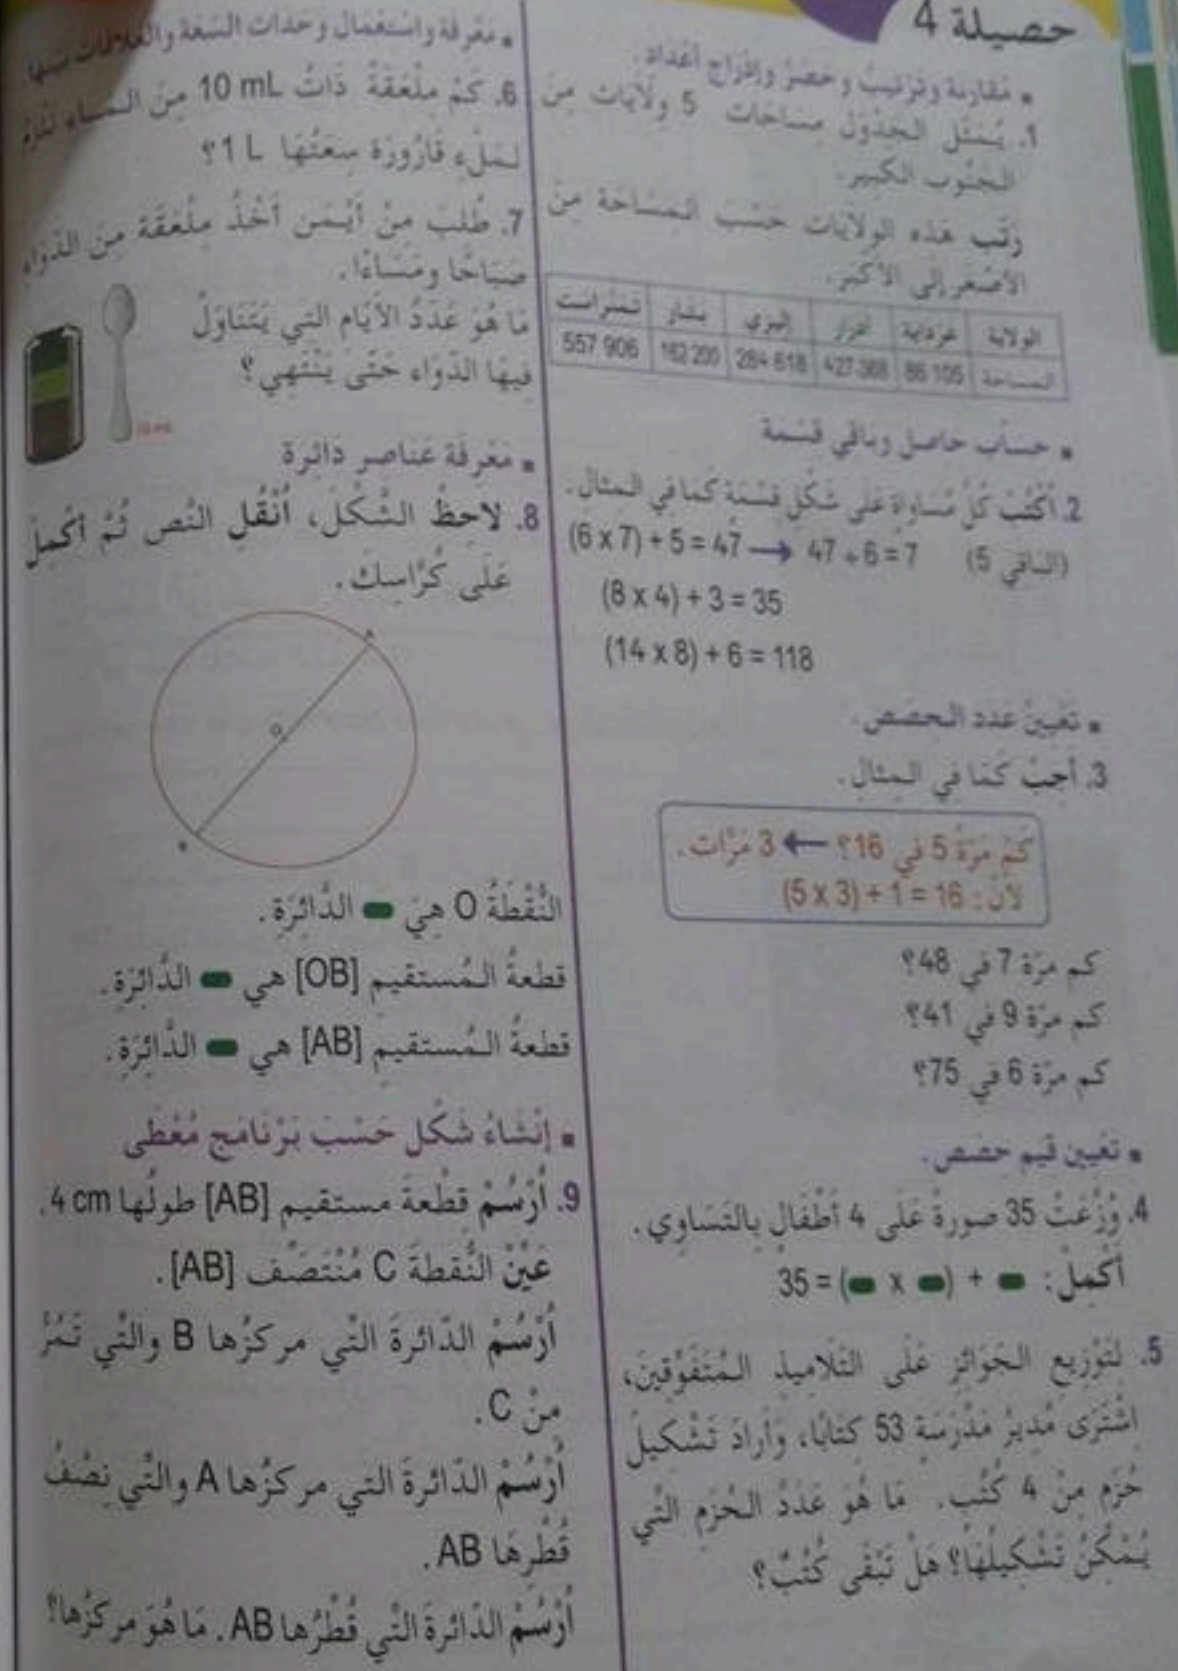 حصيلة 4
▪ مُقارنة وترتيبُ وحَصْرُ وإدْراج أعْداد.
1. يُمثّل الجَدْوَلُ مِسَاحَات 5 وِلَايَات مِنَ
الجنُوب الكَبير.
رَتّب هَذه الوِلَايَات حَسْبَ المِسَاحَة مِنَ
الأصْغر إلى الأكْبَر.
الولاية | غرداية | أدرار | إليزي | بشار | تمنراست
المساحة | 86 105 | 427 368 | 284 618 | 162 200 | 557 906
▪ حساب حاصل وباقي قسْمة
2. أكْتُبْ كُلّ مُساواة عَلى شَكْل قِسْمَة كَما في المثال.
(6 x 7) + 5 = 47 → 47 ÷ 6 = 7 (الباقي 5)
(8 x 4) + 3 = 35
(14 x 8) + 6 = 118
▪ تَعْيينُ عَدد الحِصَص.
3. أجبْ كَمَا في المثال.
كَمْ مَرّةً 5 في 16؟ ← 3 مَرّات.
لأنّ: 16 = 1 + (3 x 5)
كم مرّة 7 في 48؟
كم مرّة 9 في 41؟
كم مرّة 6 في 75؟
▪ تَعْيين قيَم حصَص.
4. وُزّعَتْ 35 صورةً عَلَى 4 أطْفَالٍ بالتَسَاوي.
أكْمِلْ: 35 = ( x ) +
5. لتَوْزِيع الجَوَائِزِ عَلَى التَلَاميذِ المُتَفَوّقينَ،
اشْتَرَى مُديرُ مَدْرَسَةٍ 53 كِتَابًا، وَأرادَ تَشْكيلَ
حُزَمٍ مِنْ 4 كُتُبٍ. مَا هُوَ عَدَدُ الحُزَمِ التّي
يُمْكِنُ تَشْكيلُهَا؟ هَلْ تَبْقَى كُتُبٌ؟
▪ مَعْرفَة واسْتعْمال وحَدات السّعَة والعَلاقات بَيْنها
6. كَمْ مِلْعَقَةً ذَاتُ 10 mL مِنَ المَاء تَلْزمُ
لمَلْءِ قَارُورَة سِعَتُهَا 1 L؟
7. طُلِبَ مِنْ أيْمَن أخْذُ مِلْعَقَة مِنَ الدّوَاء
صَبَاحًا ومَسَاءًا.
مَا هُوَ عَدَدُ الأيّام التي يَتَنَاوَلُ
فيهَا الدّوَاء حَتّى يَنْتَهِي؟
▪ مَعْرفَة عَنَاصر دَائرة
8. لَاحِظْ الشّكْلَ، أنْقُلِ النّص ثُمّ أكْمِلْ
عَلَى كُرّاسِكَ.
A
O
B
النُّقْطَةُ O هِيَ الدَّائِرَةِ.
قطعةُ المُستقيم [OB] هي الدَّائِرَةِ.
قطعةُ المُستقيم [AB] هي الدَّائِرَةِ.
▪ إنْشاءُ شَكْل حَسْبَ بَرْنَامَج مُعْطَى
9. أُرْسُمْ قِطْعةَ مستقيم [AB] طولُها 4 cm.
عَيِّنْ النُّقطةَ C مُنْتَصَف [AB].
أُرْسُمْ الدّائرةَ التّي مركزُها B والتّي تَمُرُّ
مِنْ C.
أُرْسُمْ الدّائرةَ التي مركزُها A والتّي نِصْفُ
قُطْرِهَا AB.
أُرْسُمْ الدّائرةَ التّي قُطْرُها AB. مَا هُوَ مركزُها؟